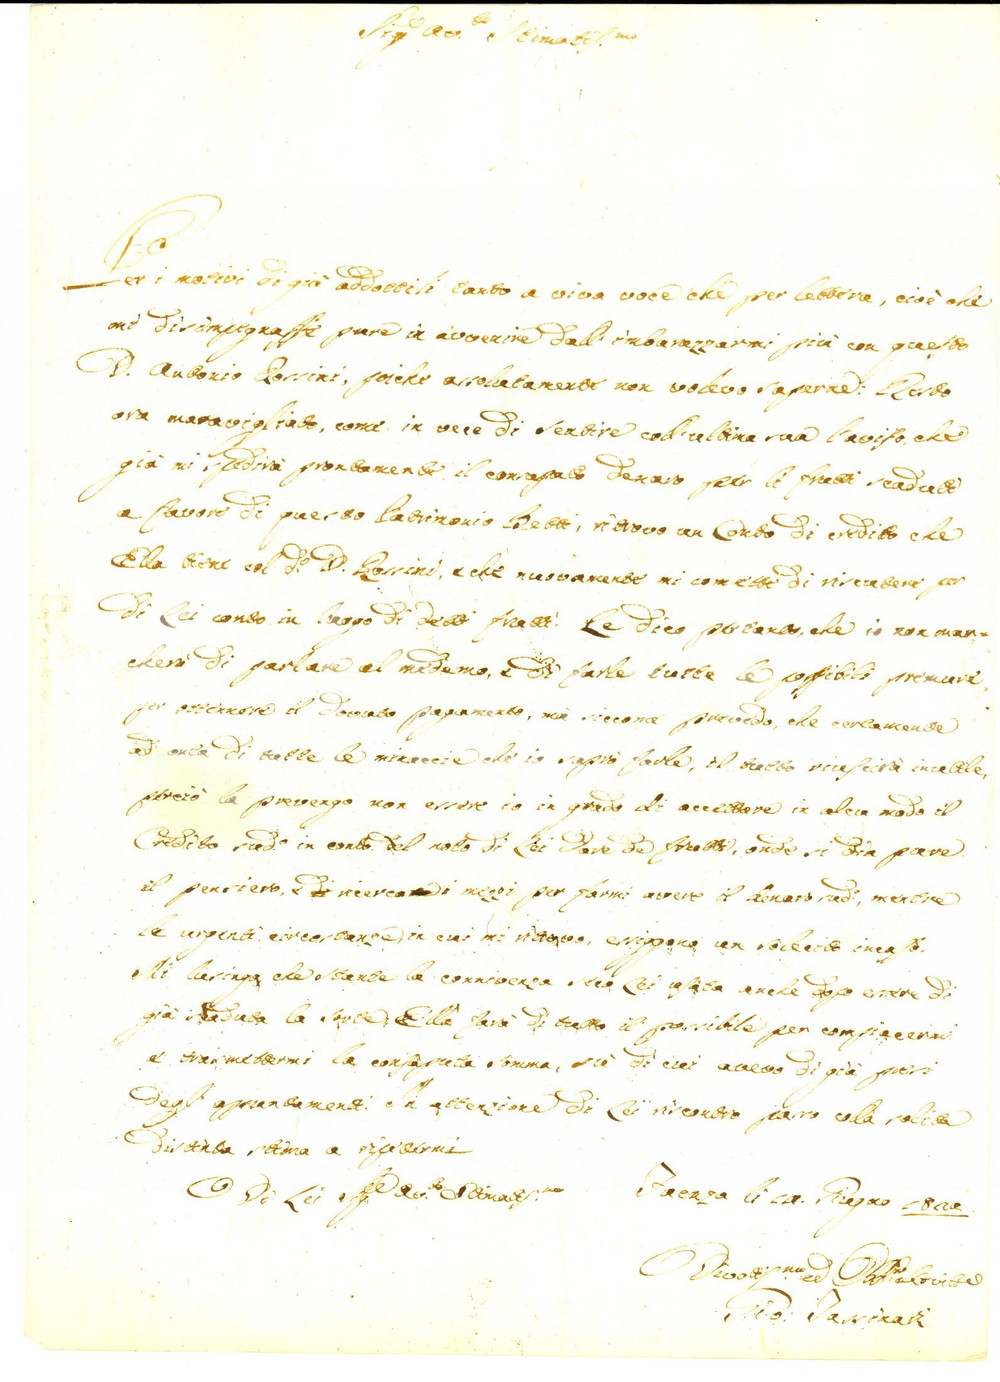 Sig.r Av.to Stimatis.mo
Per i motivi di già addottili tanto a viva voce che per lettera, cioè che
mi disimpegnasse pure in avvenire dall' imbarazzarmi più con questo
D. Antonio Rossini, poiché assolutamente non volevo saperne: Resto
ora maravigliato, come in vece di sentire coll'ultima sua l'avviso, che
già mi spedirà prontamente il consaputo denaro per li frutti scaduti
a favore di questo Patrimonio Betti, ritrovo un Conto di credito che
Ella tiene col d.o D. Rossini, e che nuovamente mi comette di riscuotere per
di Lei conto in luogo di detti frutti. Le dico pertanto, che io non man=
cherò di parlare al medemo, e di farle tutte le possibili premure,
per ottennere il dovuto pagamento, mà siccome prevedo, che certamente
ad onta di tutte le minaccie che io saprò farle, il tutto riuscirà inutile,
perciò la prevengo non essere io in grado di accettare in alcun modo il
Credito sud.o in conto del noto di Lei Dare de frutti, onde si dia pure
il pensiero, e di ricercare i mezzi per farmi avere il denaro sud.o, mentre
le urgenti circostanze, in cui mi ritrovo, esiggono un sollecito incasso.
Mi lusingo che stante la connivenza seco Lei usata anche dopo essere di
già scaduta la sorte, Ella farà di tutto il possibile per compiacermi
e trasmettermi la consaputa somma, su di cui avevo di già presi
degl' appuntamenti. In attenzione di Lei riscontro passo colla solita
distinta stima a ripetermi
Di Lei Sig.r Av.to Stimatis.mo
Faenza li Giugno
Divotis.mo ed Obb.mo Servitore
Gio: Tassinari